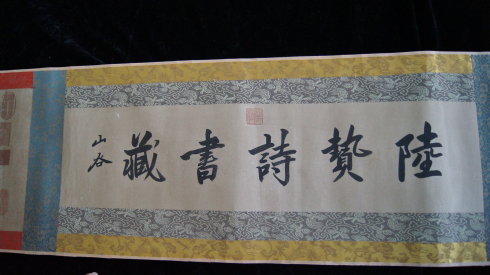 陸贄詩書藏
山谷